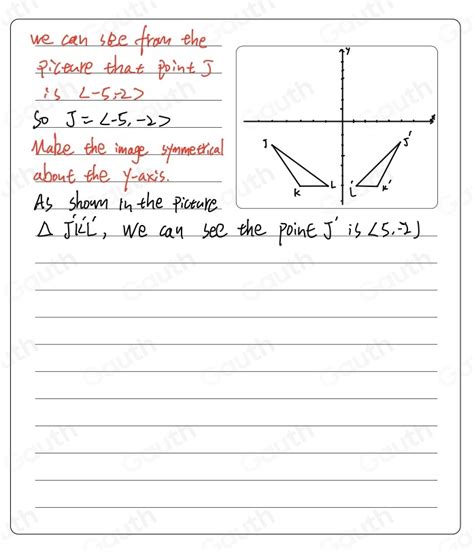 we can see from the
picture that point J
is <-5,-2>
So J = <-5, -2>
Make the image symmetrical
about the y-axis.
As shown in the picture
△ J'K'L', we can see the point J' is <5,-2)
y
x
J
K
L
J'
L'
K'
Gauth